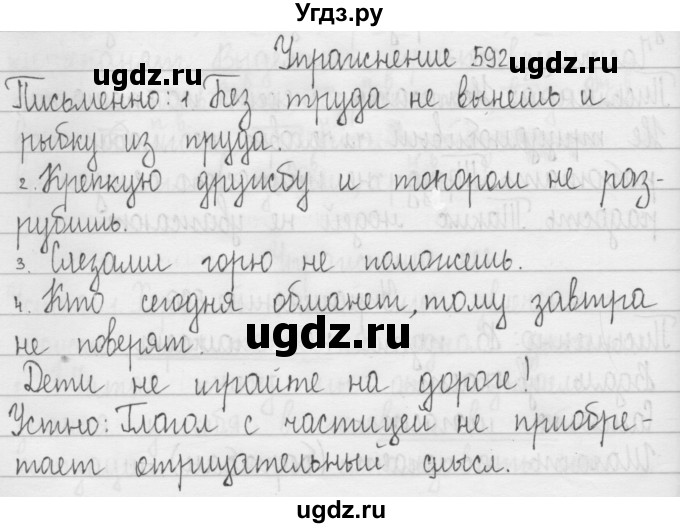 Угдз.ру
Упражнение 592
Письменно: 1. Без труда не вынешь и
рыбку из пруда.
2. Крепкую дружбу и топором не раз-
рубишь.
3. Слезами горю не поможешь.
4. Кто сегодня обманет, тому завтра
не поверят.
Дети не играйте на дороге!
Устно: Глагол с частицей не приобре-
тает отрицательный смысл.
ugdz.ru
ugdz.ru
ugdz.ru
ugdz.ru
ugdz.ru
ugdz.ru
ugdz.ru
ugdz.ru